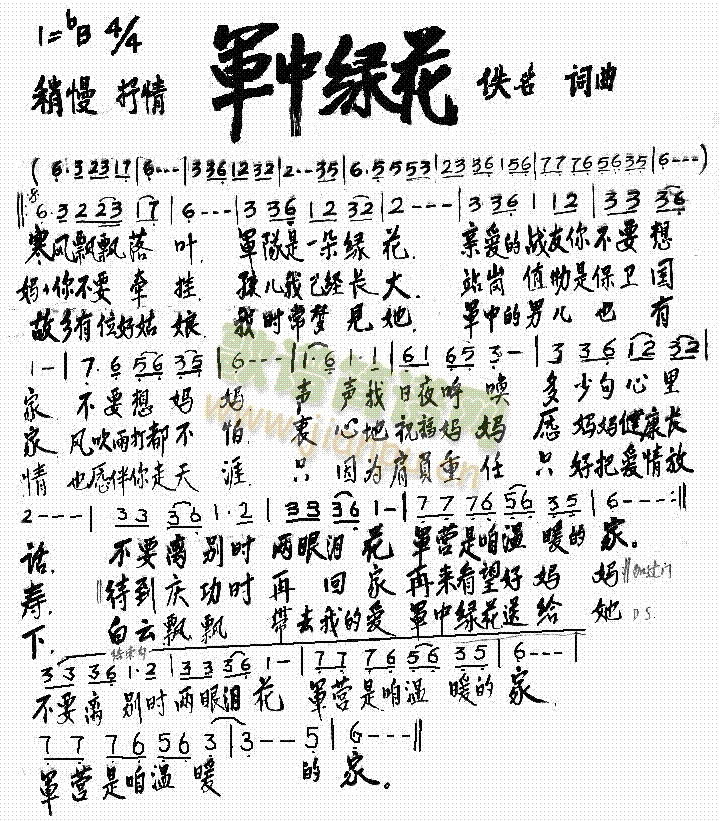 1=ᵇB 4/4
軍中绿花
稍慢 抒情
佚名 词曲
(6·3 2317|6---|336 1232|2--35|6·5553|2336 156|7776 5635|6---)
‖:6·3 2231 17|6---|3 36 12 32|2---|3 36 1 12|3 3 36|
寒风飘飘落 叶. 軍隊是一朵绿 花. 亲爱的战友你不要想
妈妈你不要 牵 挂. 孩儿我已经长 大. 站岗 值勤是保卫国
故乡有位好姑 娘. 我时常梦見她. 軍中的男儿 也 有
1-|7·6 56 35|6---|1·6 1·1|61 65 3-|3 36 12 32|
家 不要想 妈 妈 声 声我日夜呼 喚 多少句心里
家 风吹雨打都不 怕 衷 心地祝福妈 妈 愿 妈妈健康长
情 也愿伴你走天 涯 只 因为肩負重 任 只 好把爱情放
2---|33 36 1·2|33 36 1-|77 76 56 35|6---:‖
话. 不要离别时 两眼泪花 軍营是咱温 暖的家.
寿. ‖待到庆功时再 回 家再来看望好妈 妈‖
下. 白云飘飘 带去我的爱 軍中绿花送 给 她 D.S.
结束句
33 36 1·2|33 36 1-|77 76 56 35|6---|
不要离 别时两眼泪花 軍营是咱温 暖的 家.
77 76 56 3|3--5|6---‖
軍营是咱温 暖 的 家.